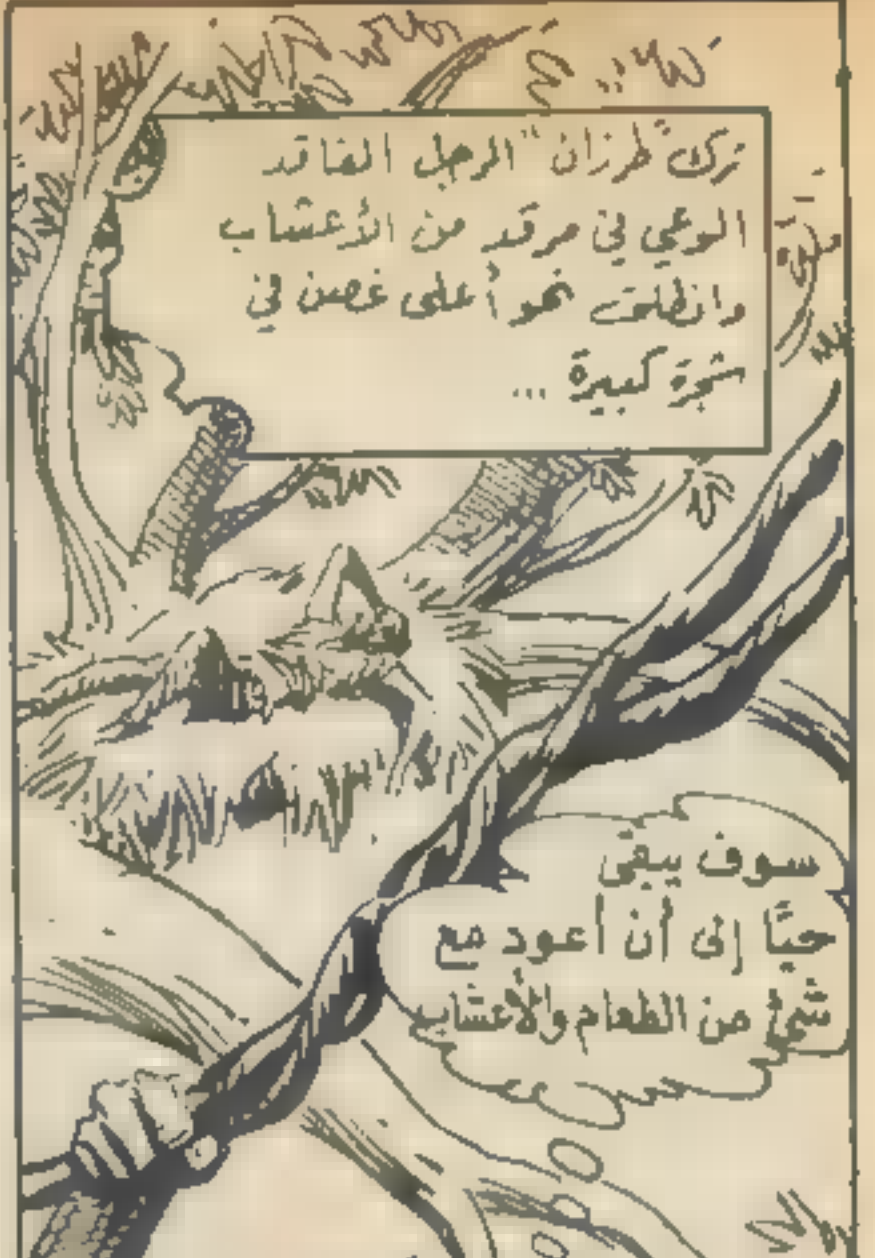 ترك "طرزان" الرجل الفاقد
الوعي في مرقد من الأعشاب
وانطلق نحو أعلى غصن في
شجرة كبيرة ...
سوف يبقى
حيًّا إلى أن أعود مع
شيء من الطعام والأعشاب